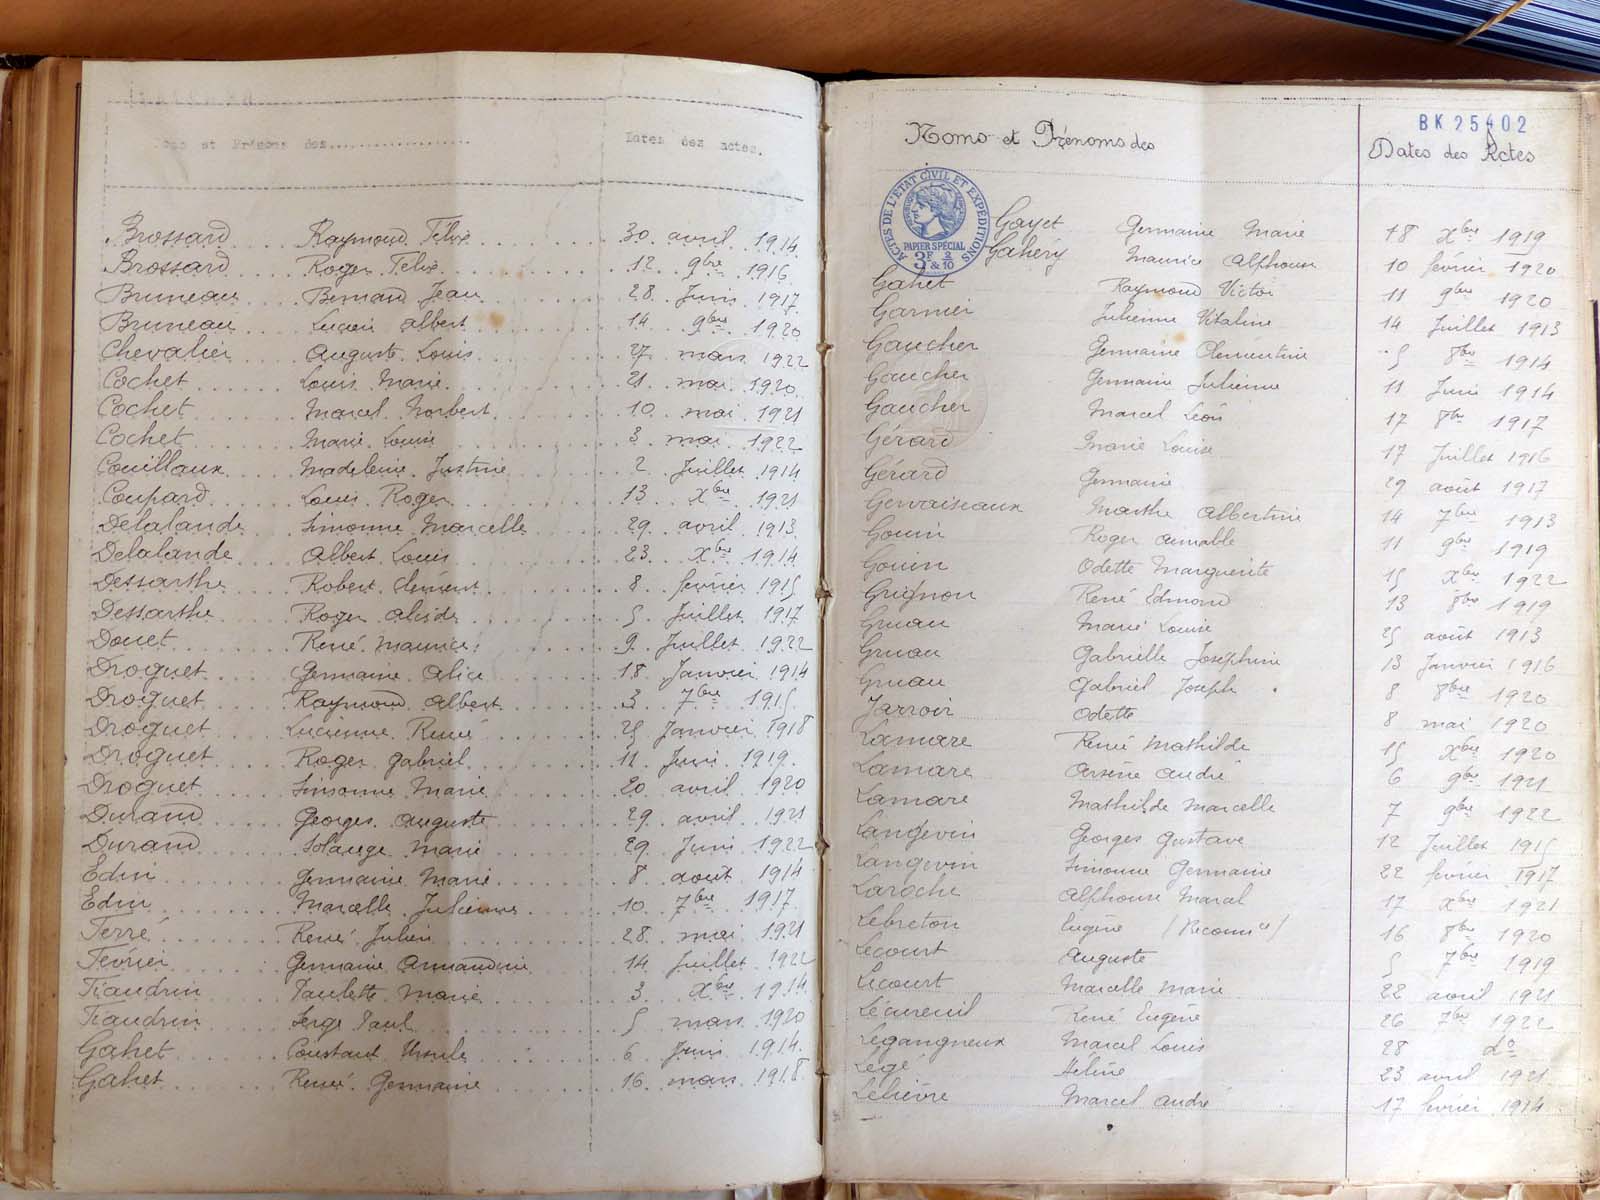 et Prénoms des..................
Dates des actes.
Brossard Raymond Félix 30 avril 1914
Brossard Roger Félix 12 9bre 1916
Bruneau Bernard Jean 28 Juin 1917
Bruneau Lucien Albert 14 9bre 1920
Chevalier Auguste Louis 27 mars 1922
Cochet Louis Marie 21 mai 1920
Cochet Marcel Norbert 10 mai 1921
Cochet Marie Louise 3 mai 1922
Couillaux Madeleine Justine 2 Juillet 1914
Coupard Louis Roger 13 Xbre 1921
Delalande Simonne Marcelle 29 avril 1913
Delalande Albert Louis 23 Xbre 1914
Dessarthe Robert Clément 8 février 1915
Dessarthe Roger Alcide 5 Juillet 1917
Douet René Maurice 9 Juillet 1922
Droguet Germaine Alice 18 Janvier 1914
Droguet Raymond Albert 3 7bre 1915
Droguet Lucienne Renée 25 Janvier 1918
Droguet Roger Gabriel 11 Juin 1919
Droguet Simonne Marie 20 avril 1920
Durand Georges Auguste 29 avril 1921
Durand Solange Marie 29 Juin 1922
Edin Germaine Marie 8 août 1914
Edin Marcelle Julienne 10 7bre 1917
Ferré René Julien 28 mai 1921
Février Germaine Armandine 14 Juillet 1922
Fiaudrin Paulette Marie 3 Xbre 1914
Fiaudrin Serge Paul 5 mars 1920
Gahet Constant Ursule 6 Juin 1914
Gahet Renée Germaine 16 mars 1918
BK 25402
Noms et Prénoms des
Dates des Actes
ACTES DE L'ÉTAT CIVIL ET EXPÉDITIONS
PAPIER SPÉCIAL
3F & 2/10
Gayet Germaine Marie 18 Xbre 1919
Gahéry Maurice Alphonse 10 février 1920
Gahet Raymond Victor 11 9bre 1920
Garnier Julienne Vitaline 14 Juillet 1913
Gaucher Germaine Clémentine 5 8bre 1914
Gaucher Germaine Julienne 11 Juin 1914
Gaucher Marcel Léon 17 8bre 1917
Gérard Marie Louise 17 Juillet 1916
Gérard Germaine 29 août 1917
Gervaiseaux Marthe Albertine 14 7bre 1913
Gouin Roger Aimable 11 9bre 1919
Gouin Odette Marguerite 15 Xbre 1922
Grignon René Edmond 13 8bre 1919
Gruau Marie Louise 25 août 1913
Gruau Gabrielle Joséphine 13 Janvier 1916
Gruau Gabriel Joseph 8 8bre 1920
Jarroir Odette 8 mai 1920
Lamare René Mathilde 15 Xbre 1920
Lamare Arsène André 6 9bre 1921
Lamare Mathilde Marcelle 7 9bre 1922
Langevin Georges Gustave 12 Juillet 1915
Langevin Simonne Germaine 22 février 1917
Laroche Alphonse Marcel 17 Xbre 1921
Lebreton Eugène (Reconnce) 16 8bre 1920
Lecourt Auguste 5 7bre 1919
Lecourt Marcelle Marie 22 avril 1921
Lécureuil René Eugène 26 7bre 1922
Légangneux Marcel Louis 28 do
Legé Hélène 23 avril 1921
Lelièvre Marcel André 17 février 1914